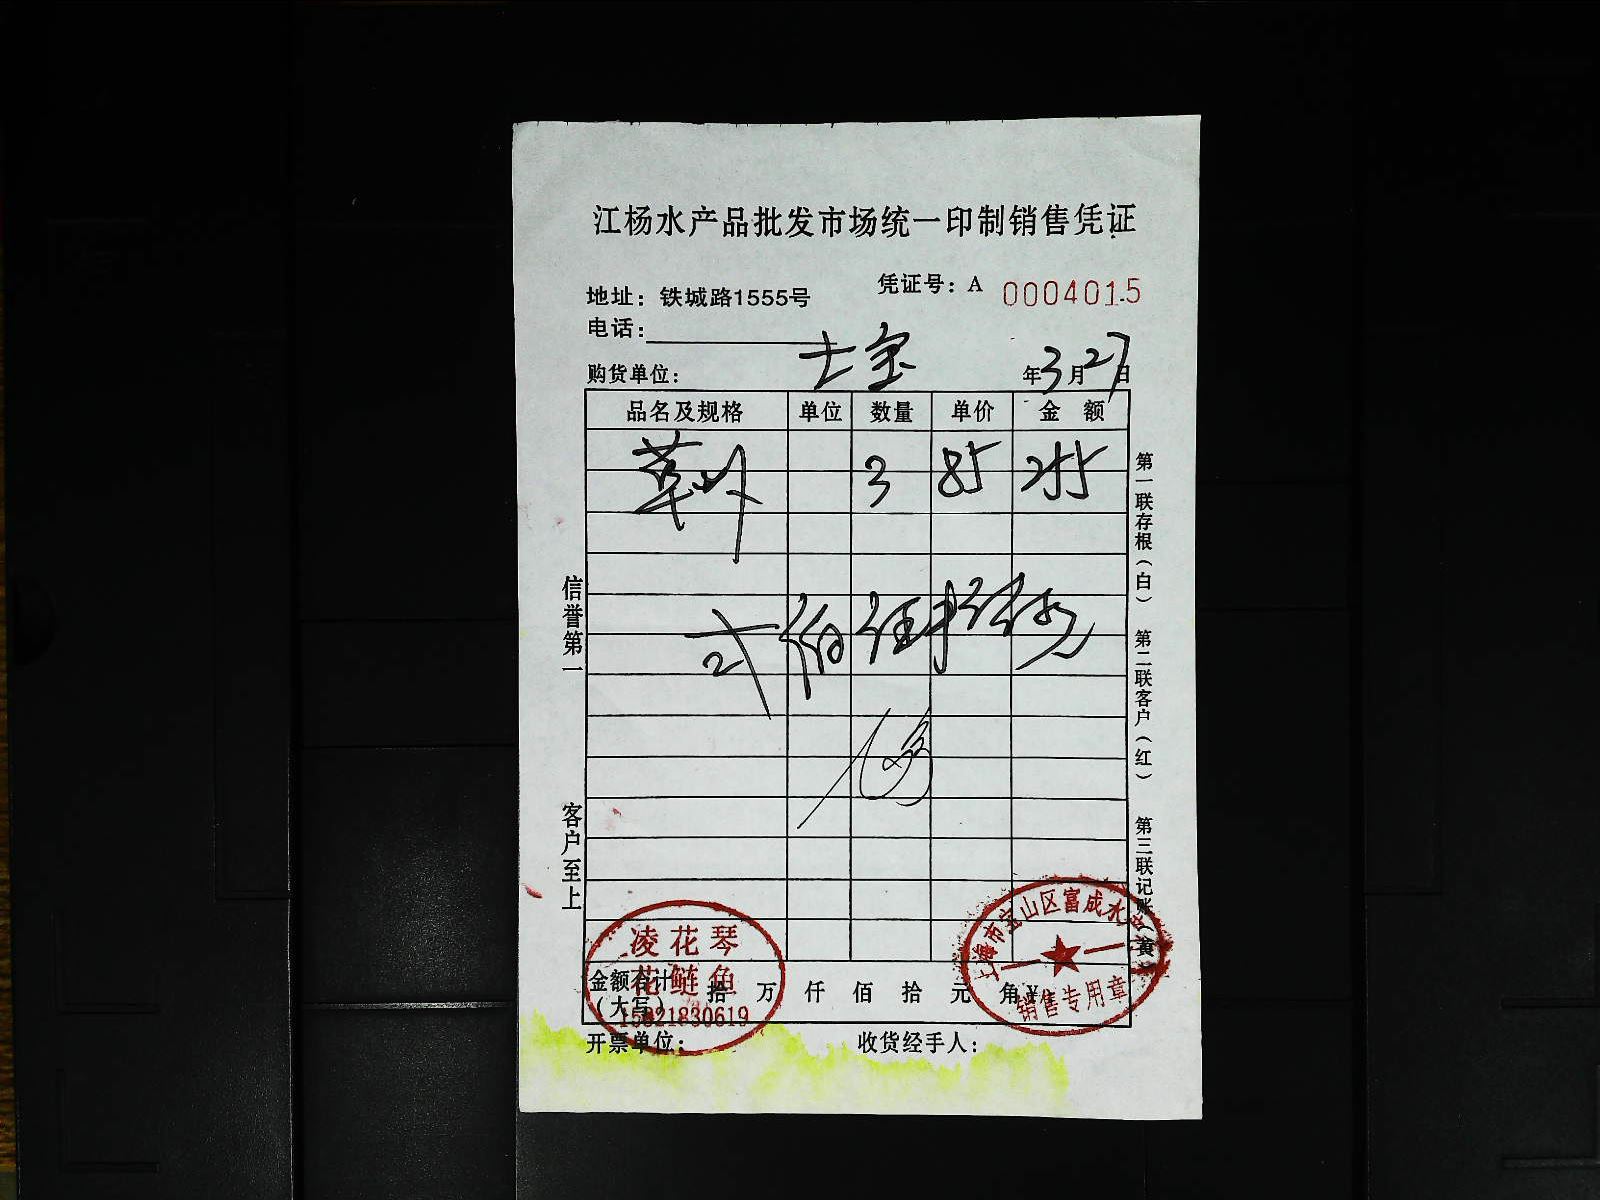 江杨水产品批发市场统一印制销售凭证
凭证号：A 0004015
地址：铁城路1555号
电话：
购货单位： 士宝 年3月27日
品名及规格 单位 数量 单价 金额
草 3 85 255
弍佰伍拾伍元
信誉第一
客户至上
第一联存根（白） 第二联客户（红） 第三联记账（黄）
凌花琴
花鲢鱼
15821830619
上海市宝山区富成水产
销售专用章
金额合计（大写） 拾 万 仟 佰 拾 元 角 ¥
开票单位： 收货经手人：